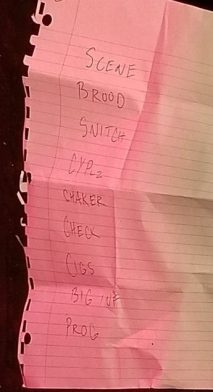 SCENE
BROOD
SNITCH
CYPZ
CHAKER
CHECK
CIGS
BIG UP
PROG